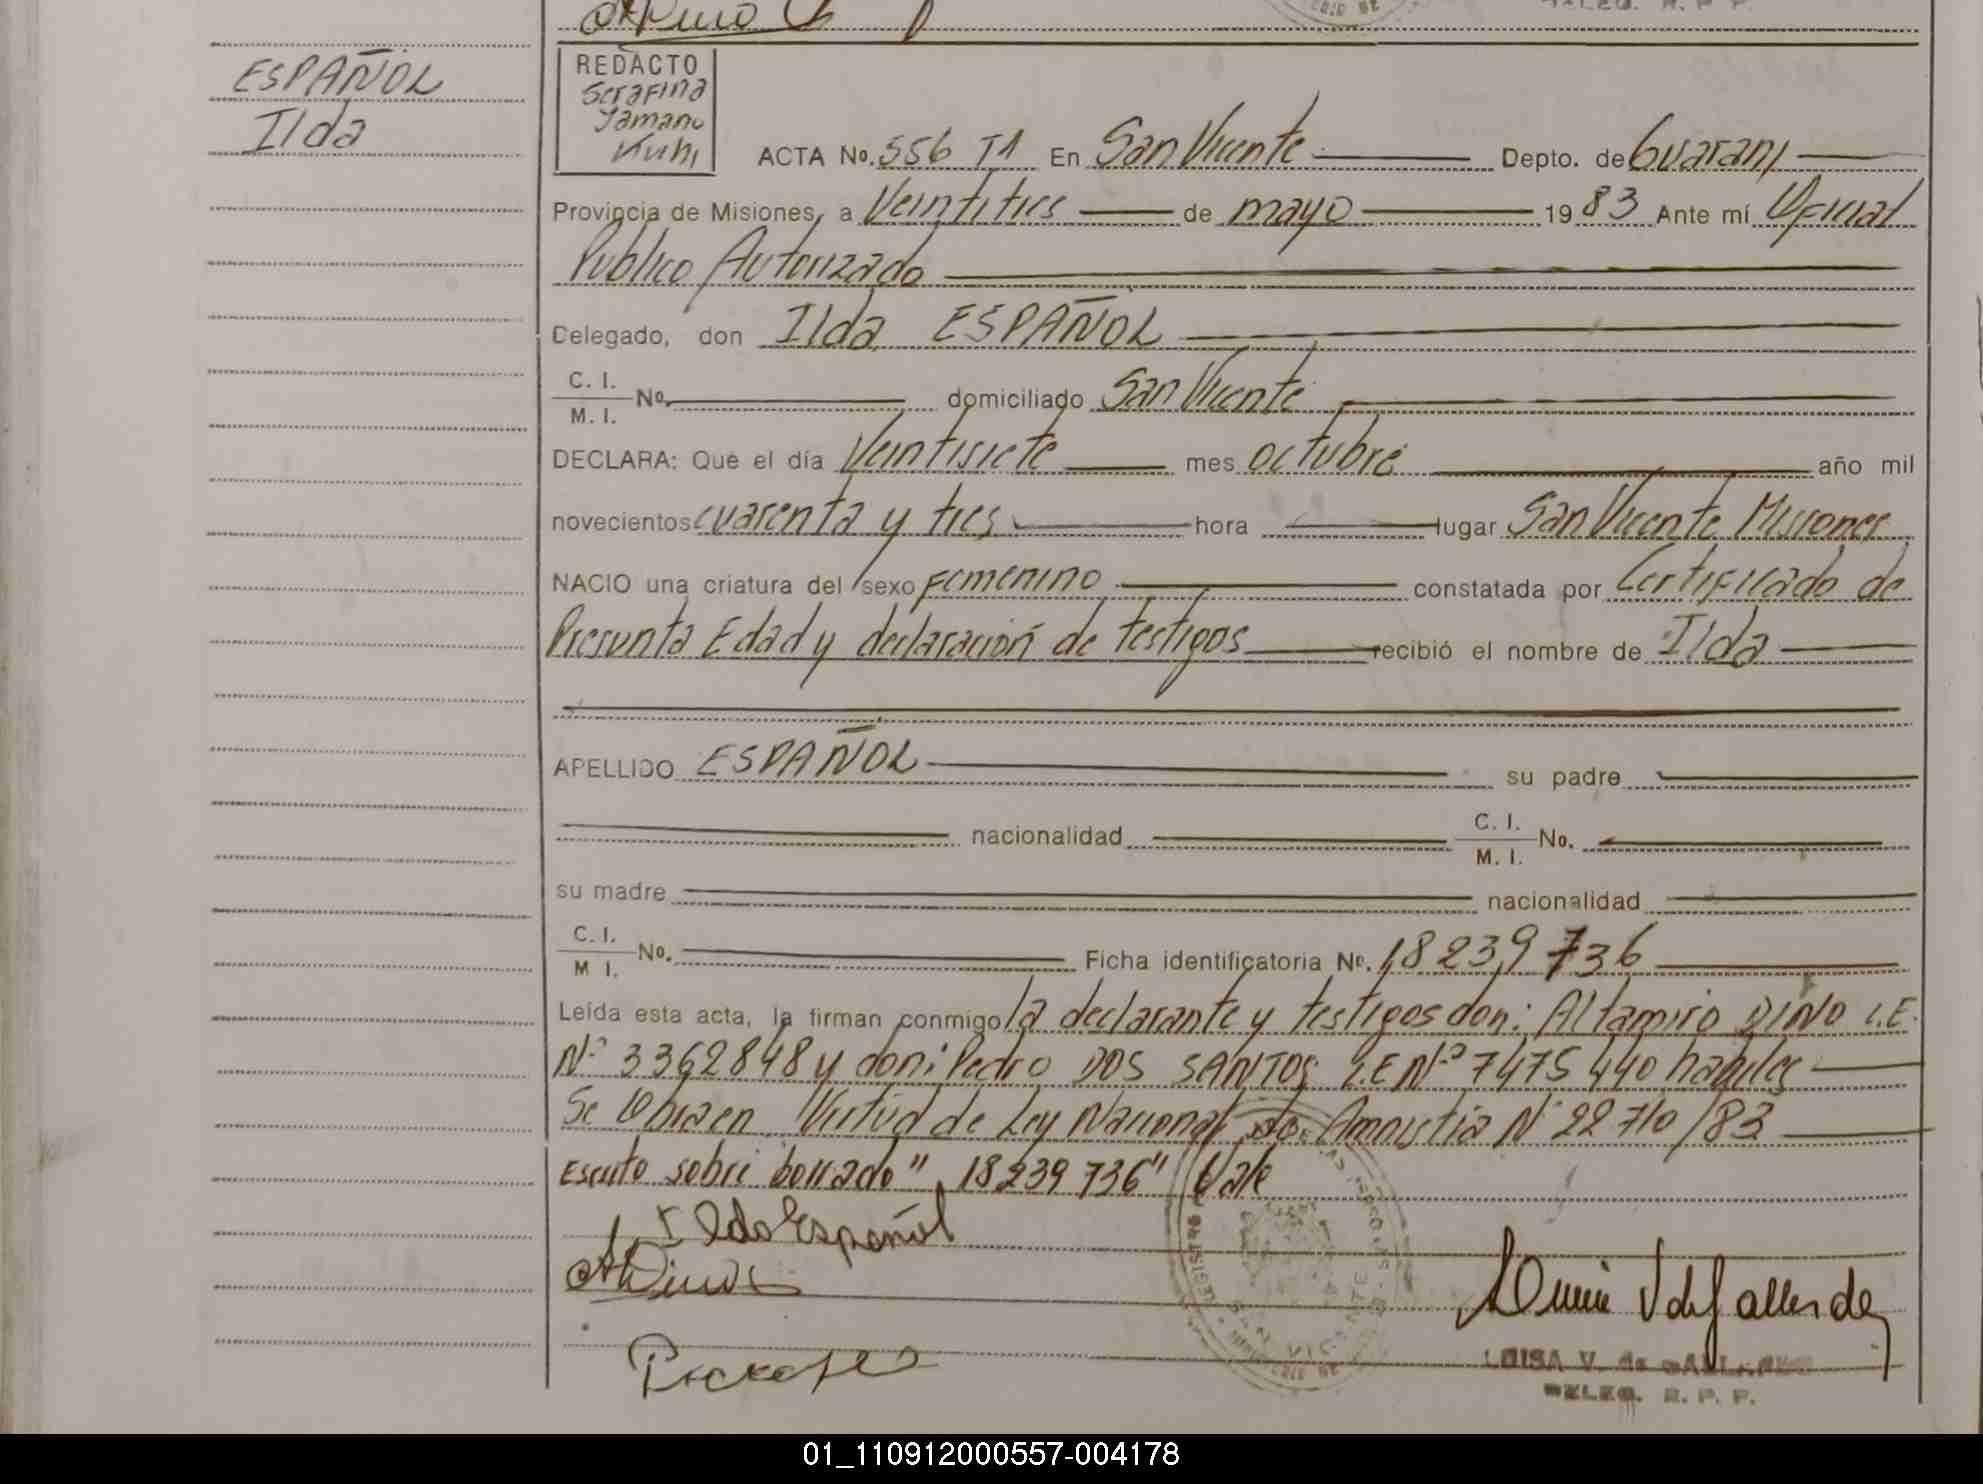 ESPAÑOL
Ilda
REDACTO
Serafina
Yamano
Kuhn
ACTA No. 556 T1 En San Vicente Depto. de Guaraní
Provincia de Misiones, a Veintitres de mayo 1983 Ante mí Oficial
Publico Autorizado
Delegado, don Ilda ESPAÑOL
C. I.
M. I. No. domiciliado San Vicente
DECLARA: Que el día Veintisiete mes octubre año mil
novecientos cuarenta y tres hora lugar San Vicente Misiones
NACIO una criatura del sexo Femenino constatada por Certificado de
Presunta Edad y declaración de testigos recibió el nombre de Ilda
APELLIDO ESPAÑOL su padre
nacionalidad C. I.
M. I. No.
su madre nacionalidad
C. I.
M I. No. Ficha identificatoria No. 18239736
Leída esta acta, la firman conmigo la declarante y testigos don: Altamiro DINO L.E.
Nº 3362848 y don: Pedro DOS SANTOS L.E Nº 7475440 habiles
Se Obra en Virtud de Ley Nacional de Amnistia Nº 22710/83
Escrito sobre borrado "18239736" Vale
Ilda Español
SAN VICENTE
LUISA V. de GALLARDO
DELEG. R. P. P.
01_110912000557-004178